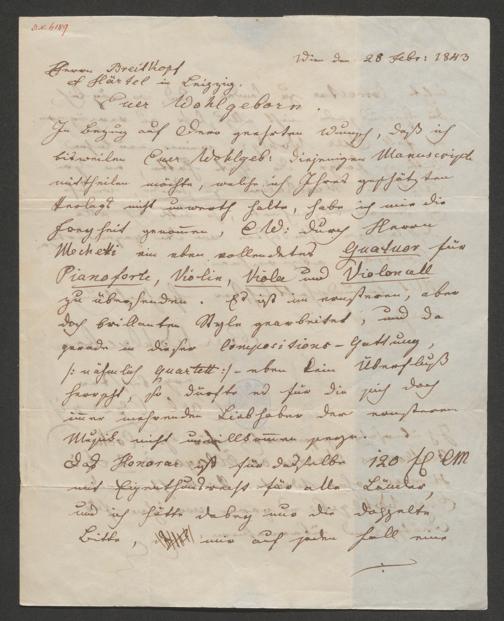 Wien den 28 Febr: 1843
Herrn Breitkopf
& Härtel in Leipzig.
Euer Wohlgeborn.
In Bezug auf Dero geehrten Wunsch, daß ich
bisweilen Euer Wohlgeb: diejenigen Manuscripte
mittheilen möchte, welche ich Ihres geschätzten
Verlags nicht unwerth halte, habe ich mir die
Freyheit genommen, E W: durch Herrn
Mechetti ein eben vollendetes Quatuor für
Pianoforte, Violin, Viola und Violoncell
zu übersenden. Es ist im ernsteren, aber
doch brillanten Style gearbeitet, und da
gerade in dieser Compositions-Gattung,
/: nähmlich Quartett :/ eben kein Überfluß
herrscht, so dürfte es für die sich doch
immer mehrenden Liebhaber der ernsteren
Musik nicht unwillkommen seyn.
Das Honorar ist für dasselbe 120 fl CM
mit Eigenthumsrecht für alle Länder,
und ich hätte dabey nur die doppelte
Bitte, mir auf jeden Fall eine